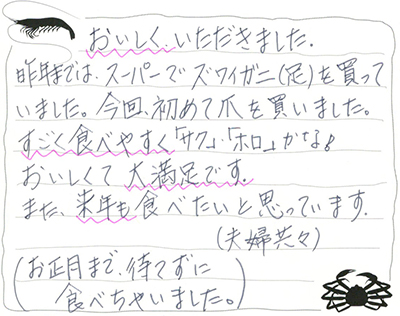 おいしく、いただきました.
昨年までは、スーパーでズワイガニ(足)を買って
いました。今回、初めて爪を買いました。
すごく食べやすく「サク」・「ホロ」かな!
おいしくて大満足です.
また、来年も食べたいと思っています.
(夫婦共々)
(お正月まで、待てずに
食べちゃいました。)